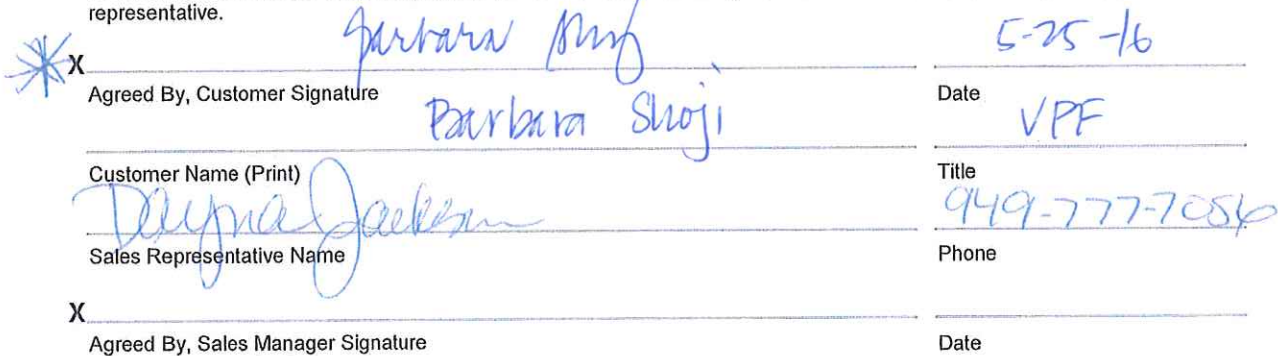 representative.
Barbara Shoji 5-25-16
X
Agreed By, Customer Signature Date
Barbara Shoji VPF
Customer Name (Print) Title
Dayna Jackson 949-777-7056
Sales Representative Name Phone
X
Agreed By, Sales Manager Signature Date